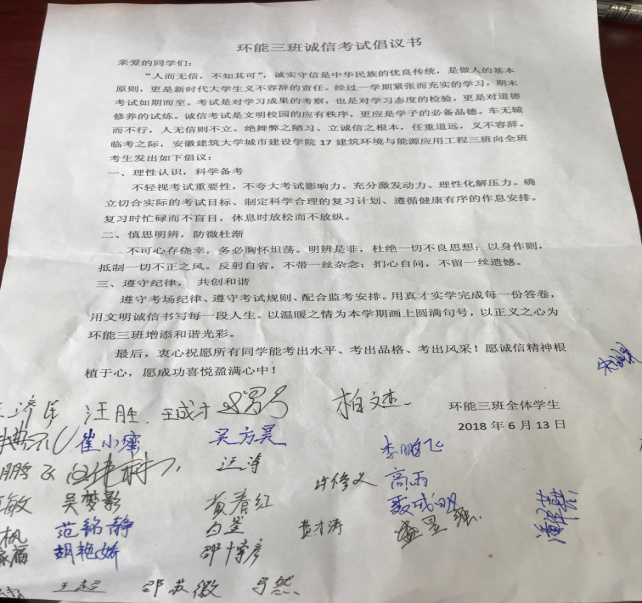 环能三班诚信考试倡议书
亲爱的同学们：
“人而无信，不知其可”，诚实守信是中华民族的优良传统，是做人的基本
原则，更是新时代大学生义不容辞的责任。经过一学期紧张而充实的学习，期末
考试如期而至。考试是对学习成果的考察，也是对学习态度的检验，更是对道德
修养的试炼。诚信考试是文明校园的应有秩序，更应是学子的必备品德。车无辕
而不行，人无信则不立。绝舞弊之陋习、立诚信之根本，任重道远，义不容辞。
临考之际，安徽建筑大学城市建设学院 17 建筑环境与能源应用工程三班向全班
考生发出如下倡议：
一、理性认识，科学备考
不轻视考试重要性，不夸大考试影响力。充分激发动力、理性化解压力。确
立切合实际的考试目标、制定科学合理的复习计划、遵循健康有序的作息安排。
复习时忙碌而不盲目，休息时放松而不放纵。
二、慎思明辨，防微杜渐
不可心存侥幸，务必胸怀坦荡。明辨是非，杜绝一切不良思想；以身作则，
抵制一切不正之风。反躬自省，不带一丝杂念；扪心自问，不留一丝遗憾。
三、遵守纪律，共创和谐
遵守考场纪律、遵守考试规则、配合监考安排。用真才实学完成每一份答卷，
用文明诚信书写每一段人生。以温暖之情为本学期画上圆满句号，以正义之心为
环能三班增添和谐光彩。
最后，衷心祝愿所有同学能考出水平、考出品格、考出风采！愿诚信精神根
植于心，愿成功喜悦盈满心中！
环能三班全体学生
2018 年 6 月 13 日
汪胜 王成才 柏文杰
崔小蜜 吴方昊 李鹏飞
汪涛 许修文 高雨
吴梦影 黄春红 聂成明
范铭静
胡艳娇 邵博彦
邵苏徽